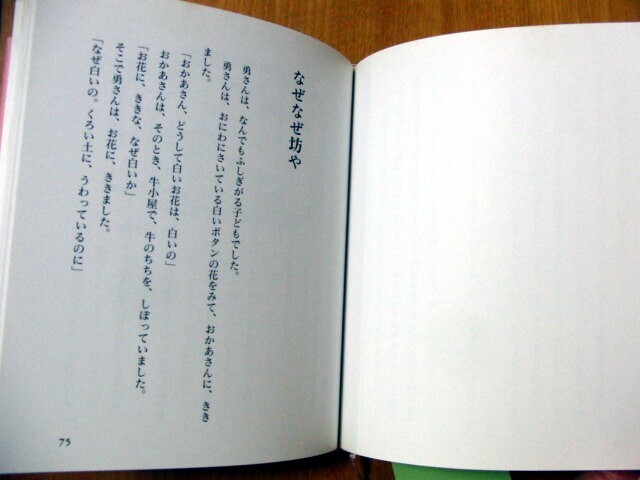 なぜなぜ坊や
勇さんは、なんでもふしぎがる子どもでした。
勇さんは、おにわにさいている白いボタンの花をみて、おかあさんに、きき
ました。
「おかあさん、どうして白いお花は、白いの」
おかあさんは、そのとき、牛小屋で、牛のちちを、しぼっていました。
「お花に、ききな、なぜ白いか」
そこで勇さんは、お花に、ききました。
「なぜ白いの。くろい土に、うわっているのに」
75